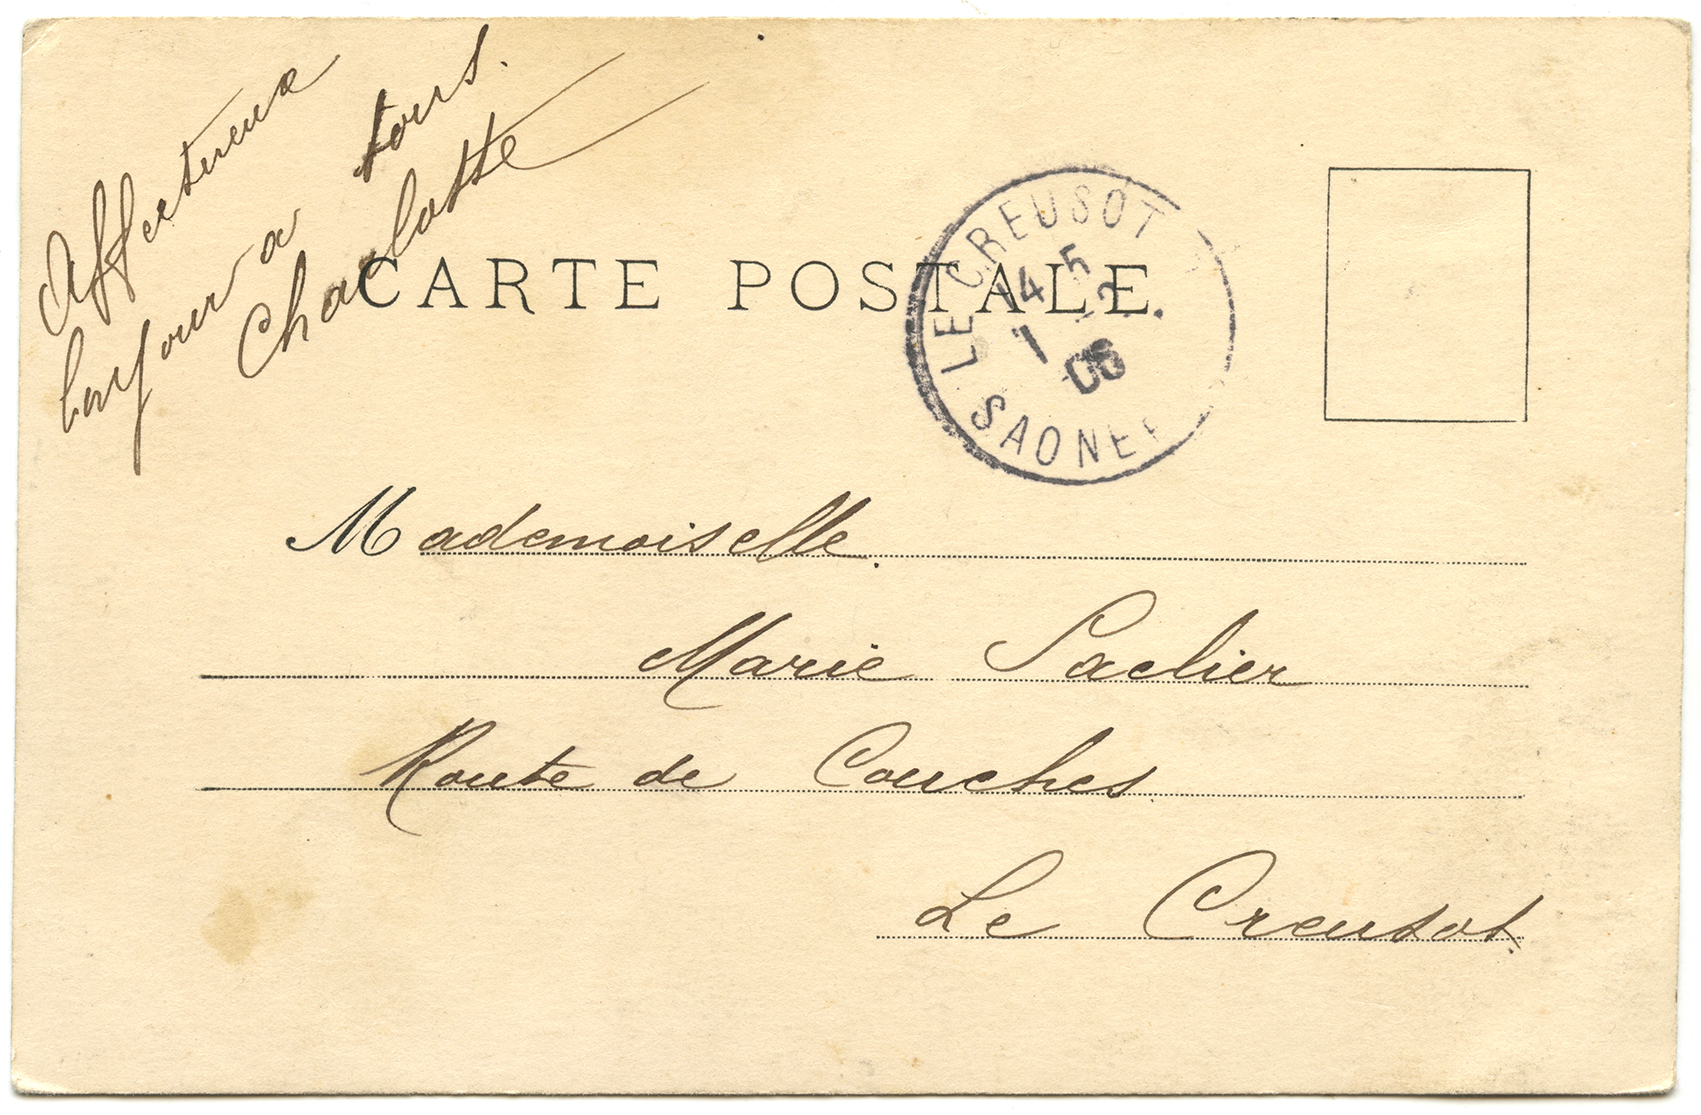 Affectueux
bonjour a tous.
Charlotte
CARTE POSTALE.
LE CREUSOT
14 5
1 2
06
SAONE
Mademoiselle.
Marie Saclier
Route de Couches.
Le Creusot.